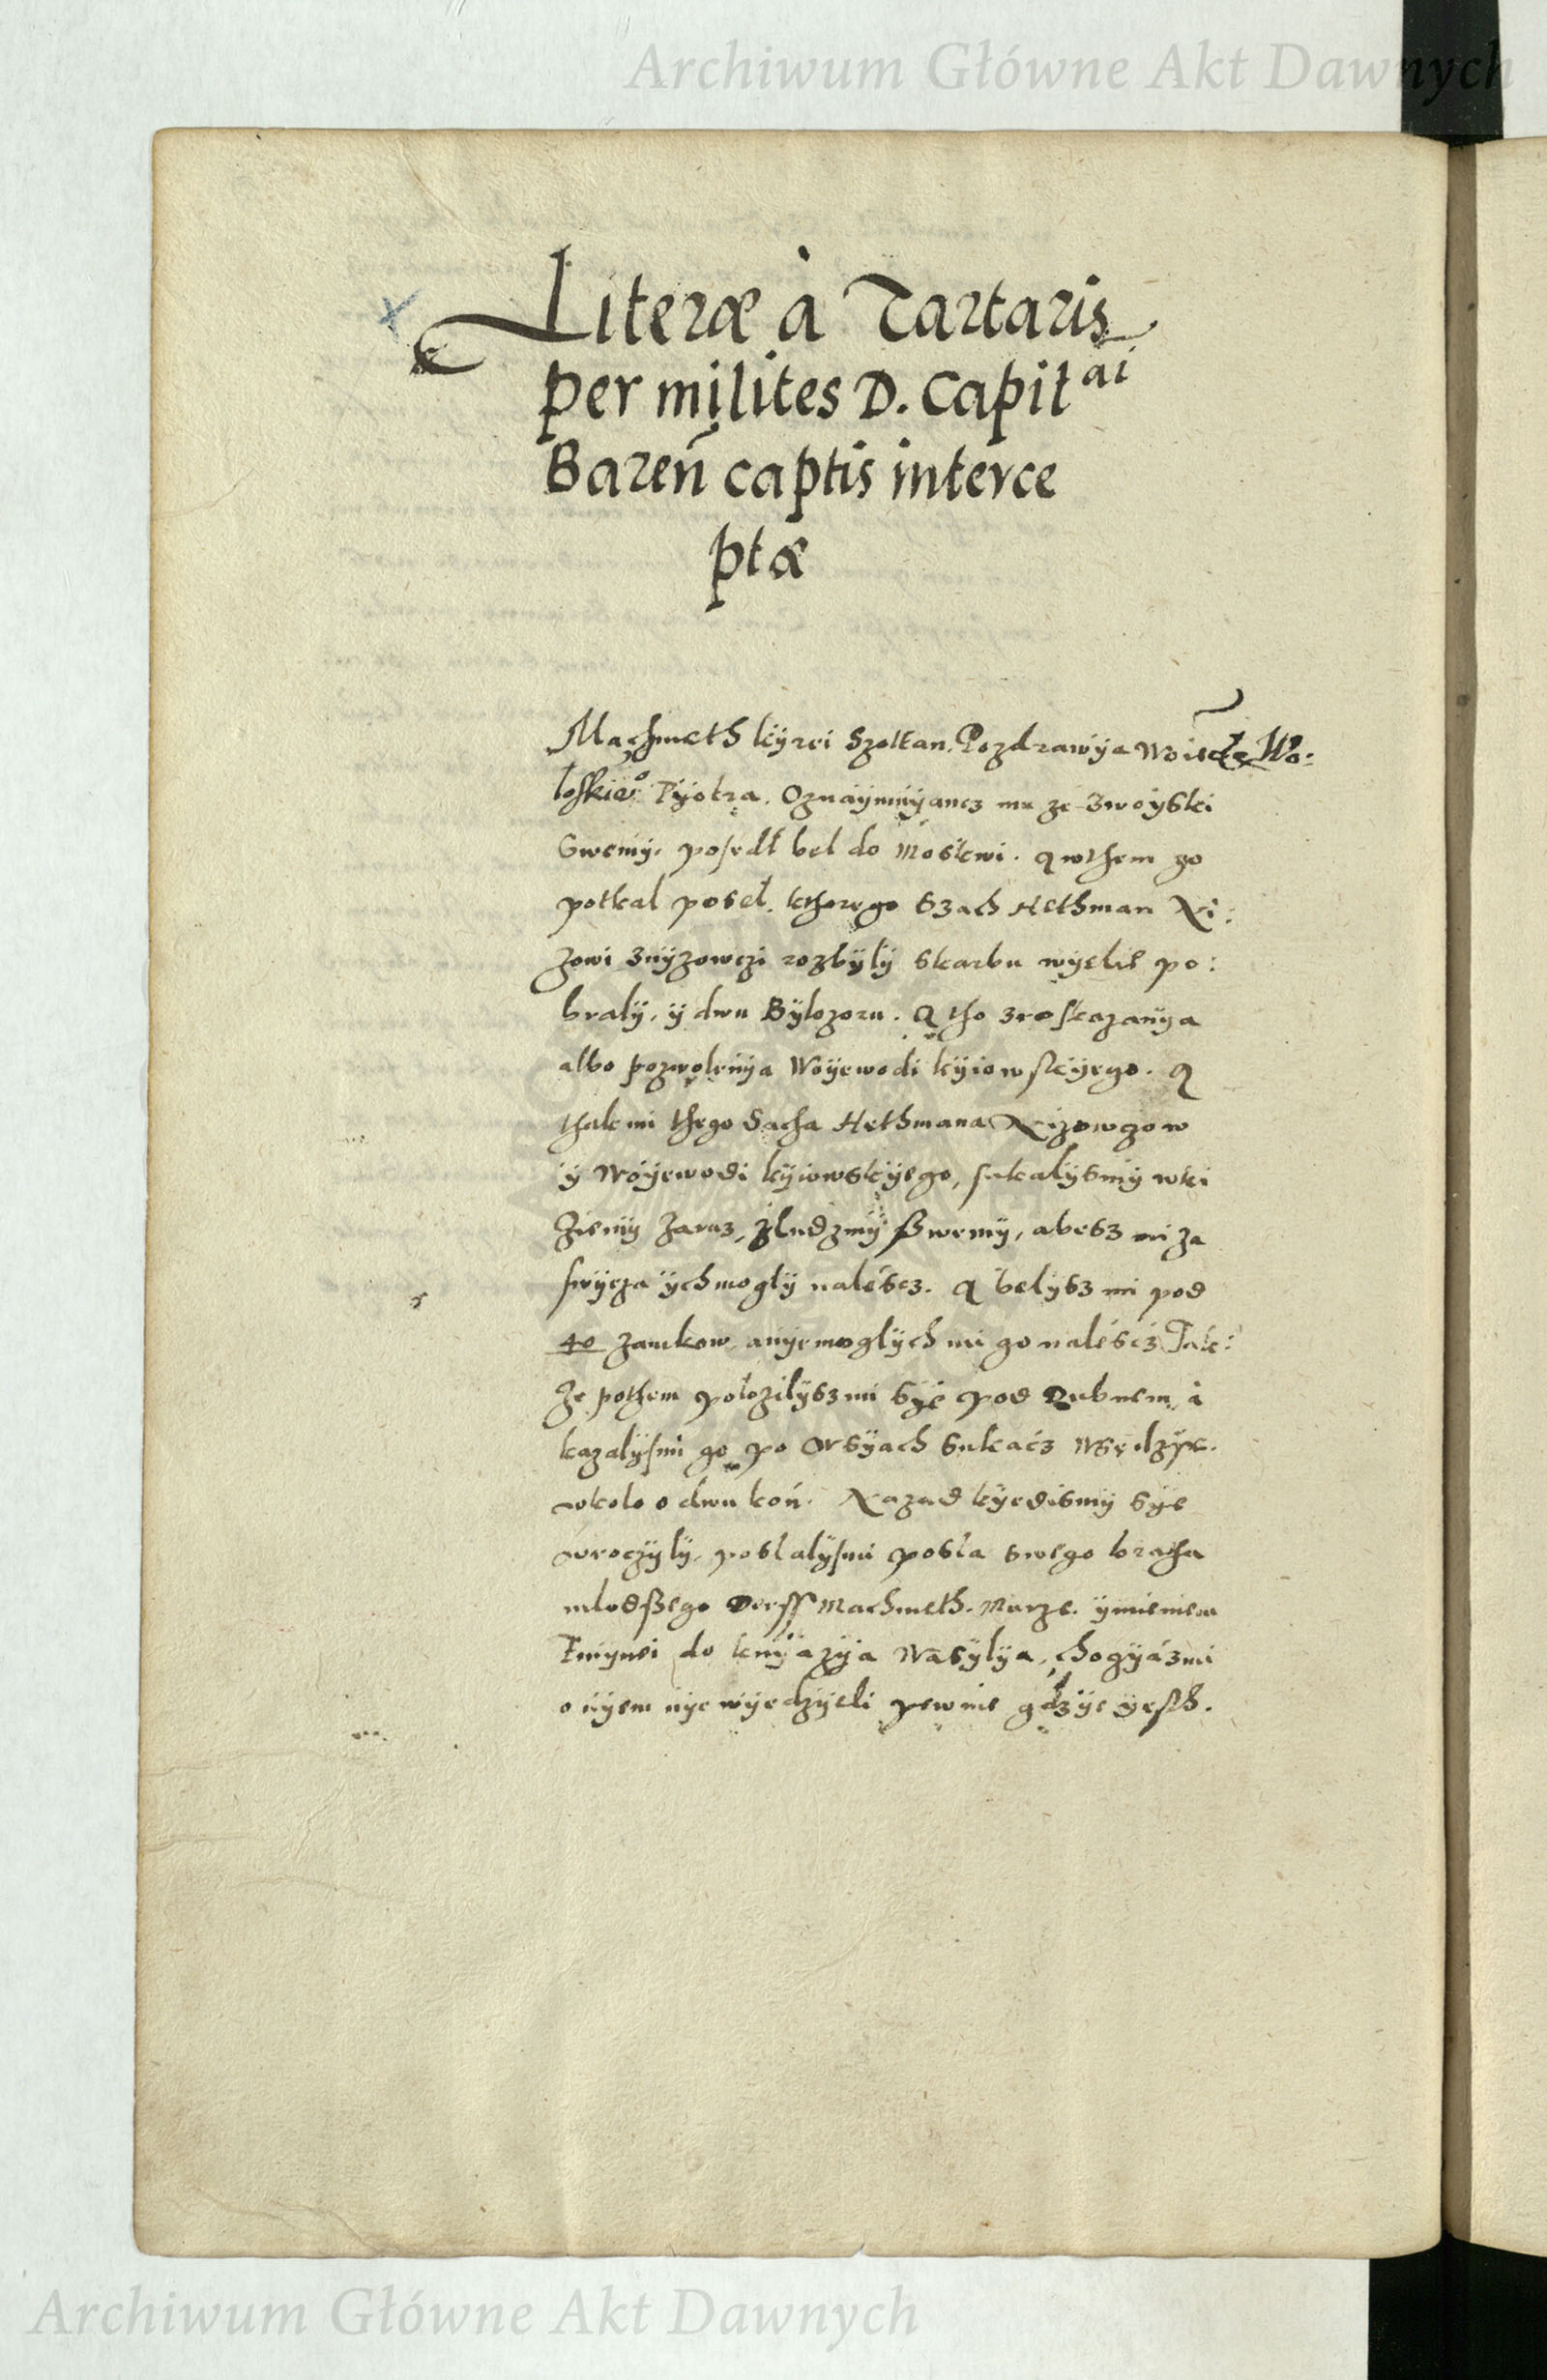 Archiwum Główne Akt Dawnych
Literæ à Tartaris
per milites D. Capit^ai
Bareñ captis interce
ptæ
Machmeth kÿrei Szoltan. Pozdrawÿa Wo:
loskie° Pÿotra. Oznaÿmuÿancz mu ze zwoÿski
swemÿ. posedł bel do Moskwi. A wthem go
potkal posel. kthorego Szach Hethman Ni:
zowi znÿzowczi rozbÿlÿ skarbu wÿelie po:
bralÿ, ÿ dwu Bÿlozoru. A tho zroskazanÿa
albo pozwolenÿa Woÿewodi kÿiowskÿego. A
thak mi thego Sacha Hethmana Nizowczow
ÿ Woÿewodi kÿiowskÿego, sukalÿsmÿ wki
Ziemÿ zaraz, zludzmÿ sswemÿ, abesz mi za
swÿeza ÿch moglÿ nalescz. A belÿsz mi pod
40 zamkow, anÿemoglÿch mi go nalescz Tak:
ze pothem położilÿsz mi sÿe pod Dubnem, à
kazalÿsmi go po wsÿach sukacz wsędzÿe.
wkolo o dwu koń. Nazad kÿedismÿ sÿe
wroczÿlÿ, poslalÿsmi posla swego bratha
mlodssego Derss Machmeth. Murze. ÿmieniem
do knÿazÿa Wasÿlÿa, chozÿasmi
o nÿem nÿe wÿedzÿeli pewnie gdzÿe ÿesth.
Archiwum Główne Akt Dawnych